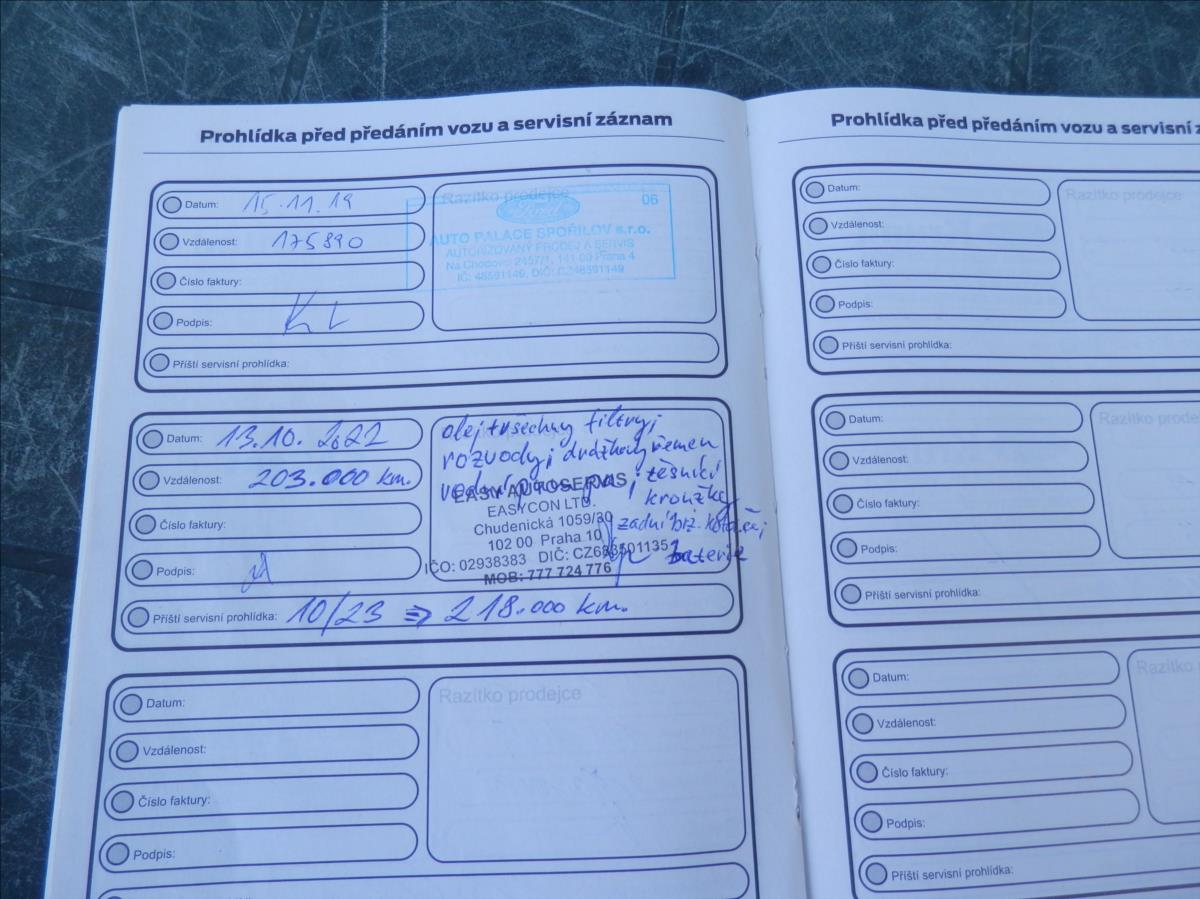 Prohlídka před předáním vozu a servisní záznam
Datum: 15.11.19
Vzdálenost: 175890
Číslo faktury:
Podpis:
Příští servisní prohlídka:
Razítko prodejce
Ford
06
AUTO PALACE SPOŘILOV s.r.o.
AUTORIZOVANÝ PRODEJ A SERVIS
Na Chodovci 2457/1, 141 00 Praha 4
IČ: 48591149, DIČ: CZ48591149
Datum: 13.10. 2022
Vzdálenost: 203.000 km.
Číslo faktury:
Podpis:
olej+všechny filtry,
rozvody, drážkový řemen
vodní, těsnící
kroužky
zadní brz. kotouče,
baterie
EASY AUTOSERVIS
EASYCON LTD.
Chudenická 1059/30
102 00 Praha 10
IČO: 02938383 DIČ: CZ6835011351
MOB: 777 724 776
Příští servisní prohlídka: 10/23 => 218.000 km.
Datum:
Vzdálenost:
Číslo faktury:
Podpis:
Razítko prodejce
Prohlídka před předáním vozu a servisní z
Datum:
Vzdálenost:
Číslo faktury:
Podpis:
Příští servisní prohlídka:
Razítko prodejce
Datum:
Vzdálenost:
Číslo faktury:
Podpis:
Příští servisní prohlídka:
Razítko prodej
Datum:
Vzdálenost:
Číslo faktury:
Podpis:
Příští servisní prohlídka:
Razítko